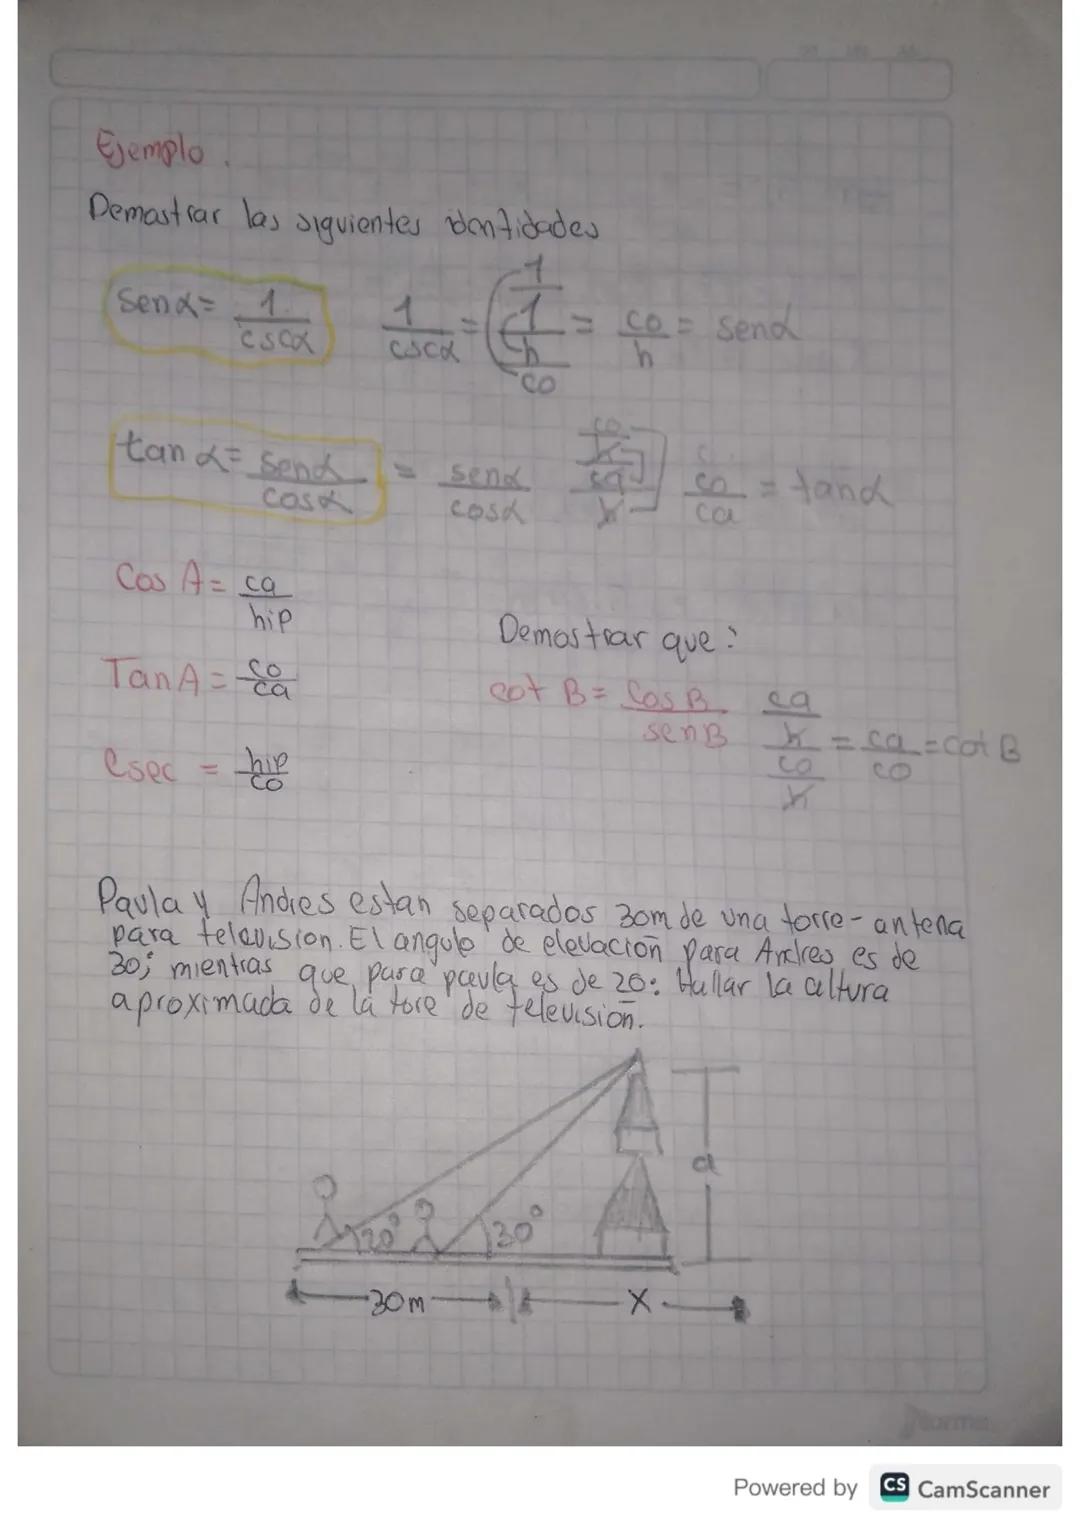 Ejemplo.
Demostrar las siguientes identidades
senα = 1/cscα 1/cscα = 1/(1/h/co) = co/h = senα
tan α = senα/cosα = senα/cosα co/h/ca/h co/ca = tanα
Cos A = ca/hip
Demostrar que:
Tan A = co/ca
cot B = Cos B/sen B ca/h/co/h = ca/co = cot B
Csec = hip/co
Paula y Andres estan separados 30m de una torre-antena
para television. El angulo de elevación para Andres es de
30; mientras que, para paula es de 20: Hallar la altura
aproximada de la tore de televisión.
a
20° 30°
30m x
norma
Powered by CS CamScanner